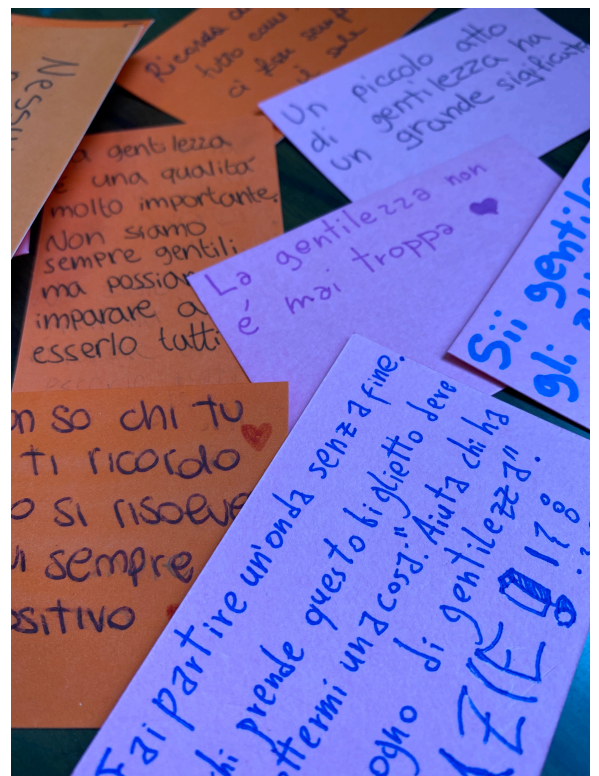 Nessu
Ricorda
tutto
ci
sole
Un piccolo atto
di gentilezza ha
un grande significato
gentilezza
è una qualità
molto importante.
Non siamo
sempre gentili
ma possia
imparare a
esserlo tutti
La gentilezza non
é mai troppa
Sii gentile
gli
on so chi tu
ti ricordo
o si risolve
i sempre
ositivo
Fai partire un'onda senza fine.
hi prende questo biglietto deve
ettermi una cosa: "Aiuta chi ha
ogno di gentilezza".
AZIE